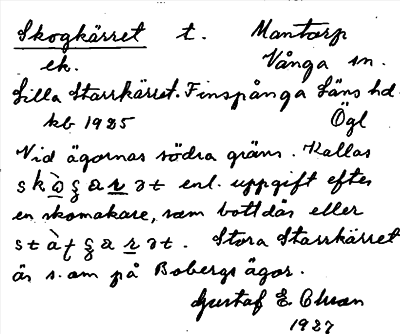 Skogkärret t. Mantorp
ek. Vånga sn.
Lilla Starrkärret. Finspånga Läns hd.
kb 1925 Ögl
Vid ägornas södra gräns. Kallas
enl. uppgift efter
en skomakare, som bott där eller
. Stora Starrkärret
är s. om på Bobergs ägor.
Gustaf E. Olsson
1927